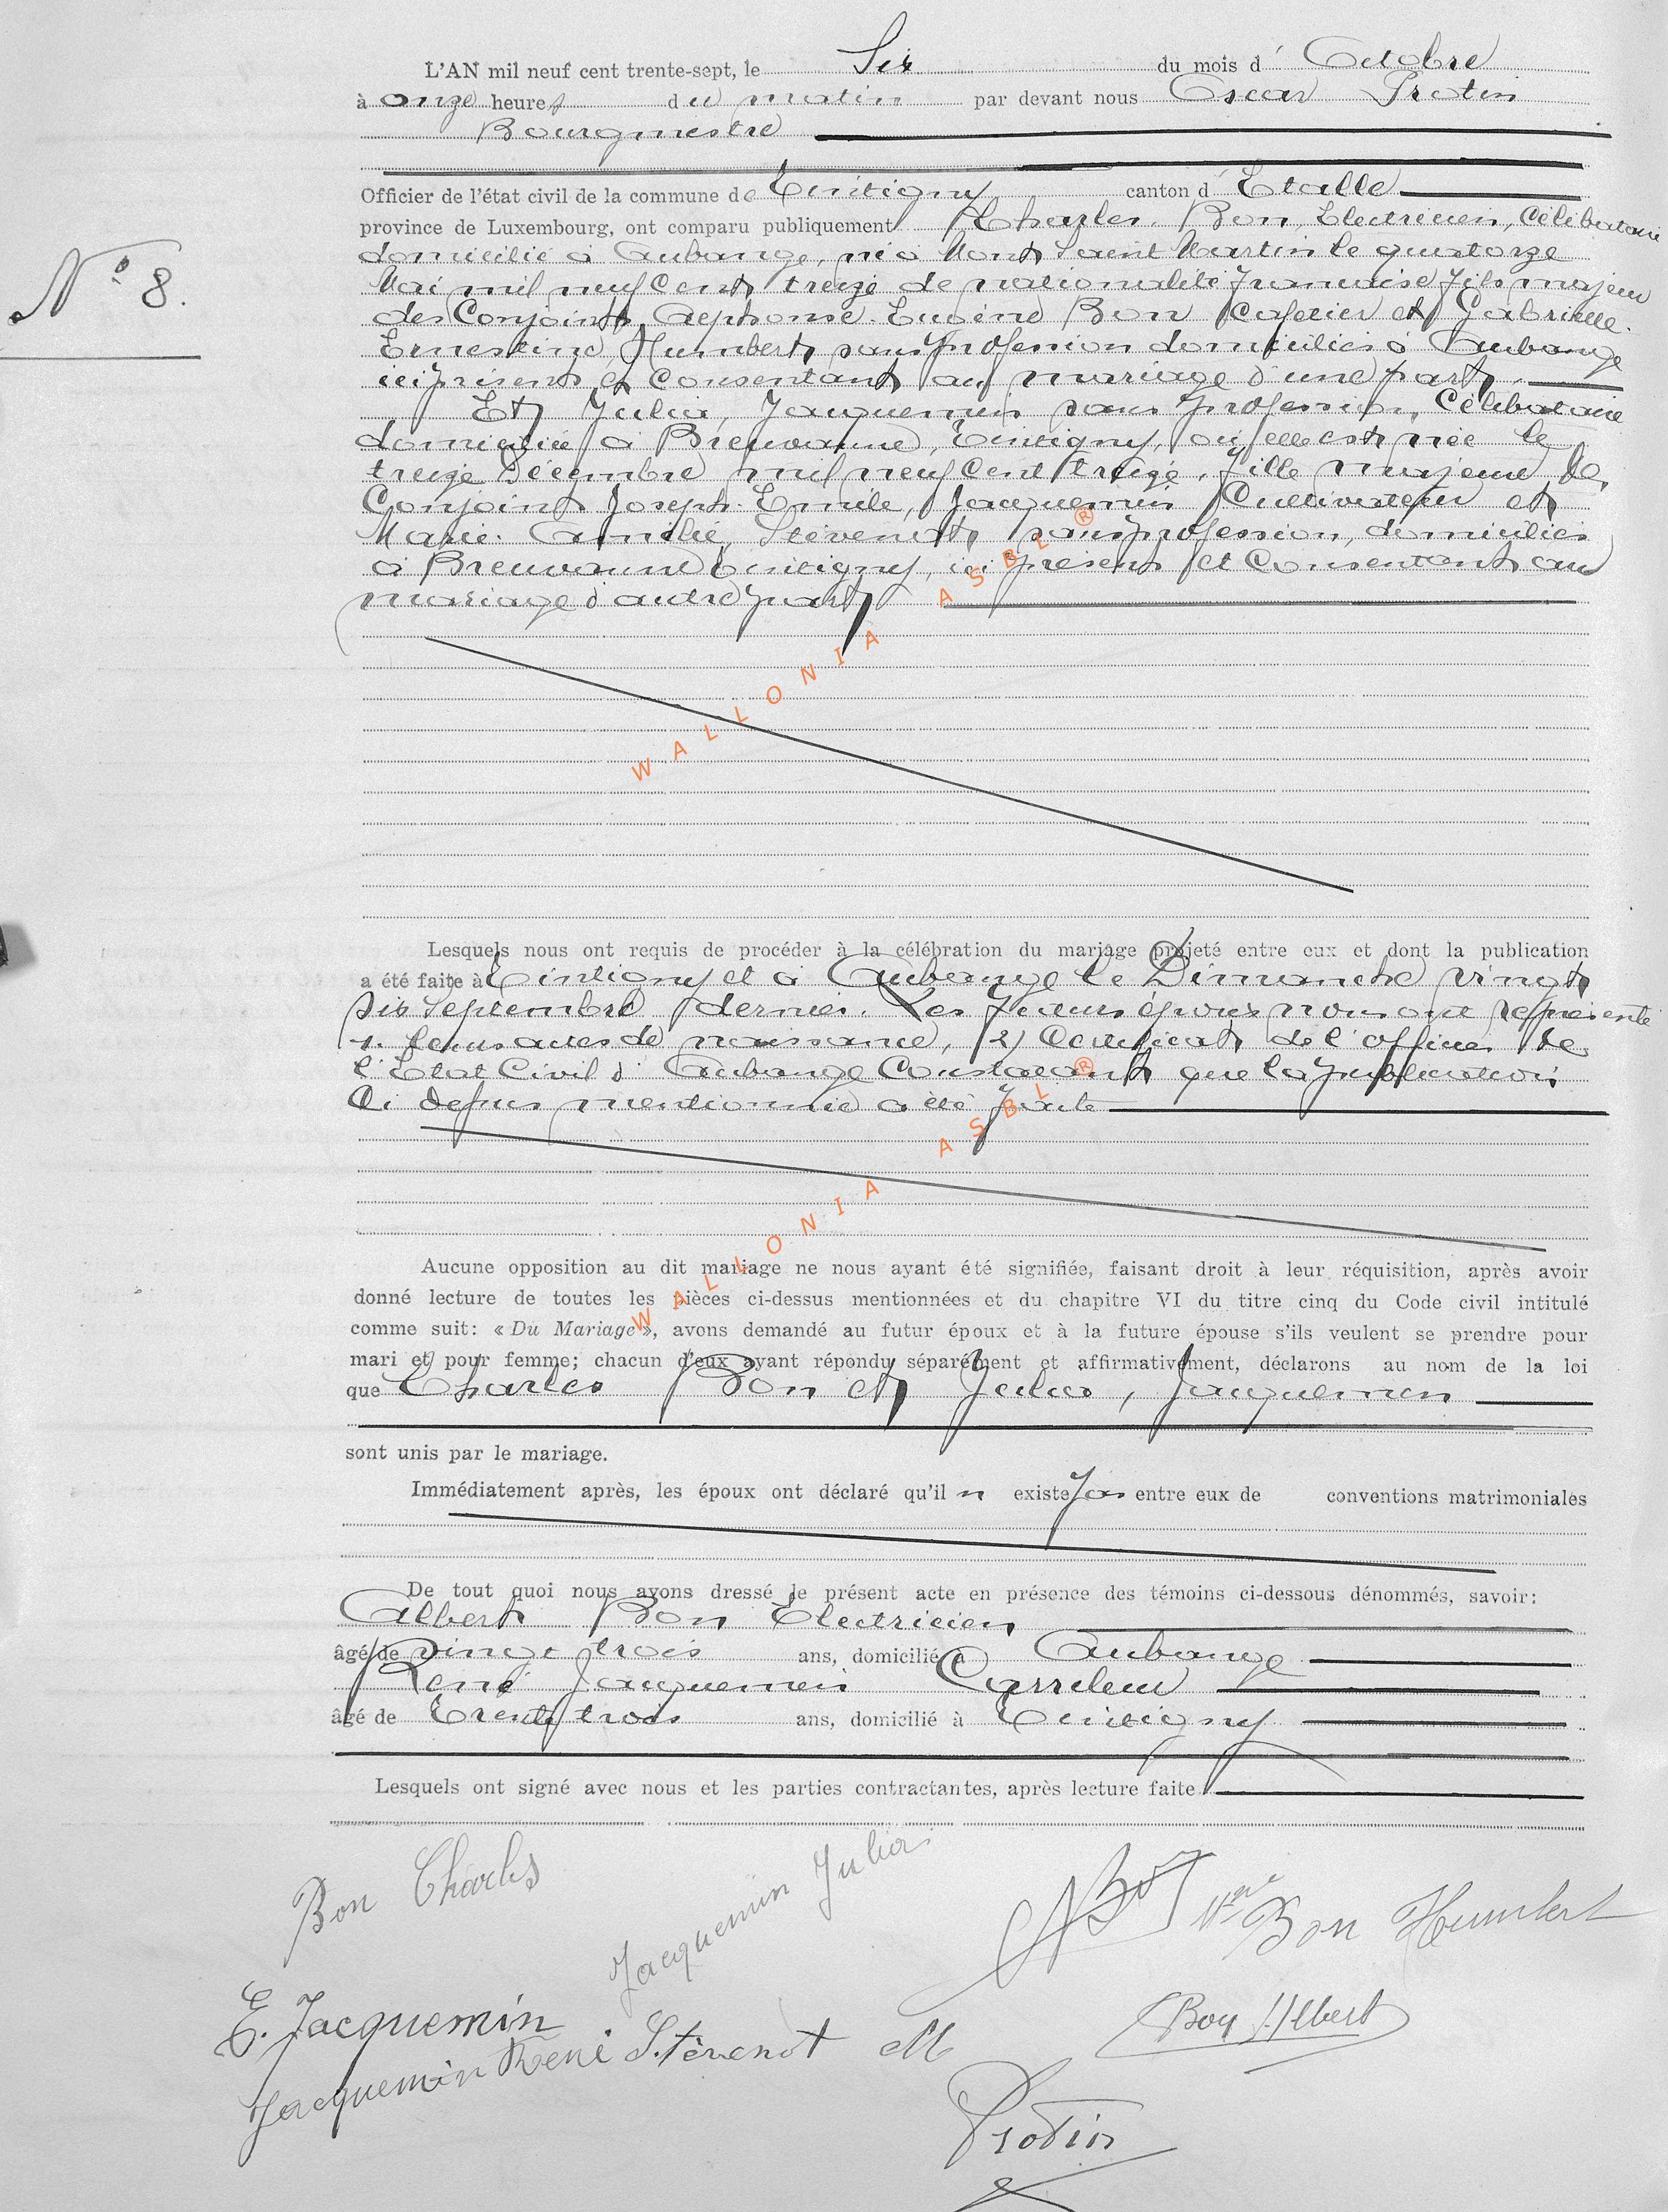 L'AN mil neuf cent trente-sept, le Six du mois d' Octobre
à onze heures du matin par devant nous Oscar Protin
Bourgmestre
Officier de l'état civil de la commune de Tintigny canton d' Etalle
province de Luxembourg, ont comparu publiquement Charles Bon, Electricien, Célibataire
N° 8.
domicilié à Aubange, né à Mont Saint Martin le quatorze
Mai mil neuf cent treize de nationalité française fils majeur
des Conjoints Alphonse Eugène Bon Cafetier et Gabrielle
Ernestine Humbert sans profession domiciliés à Aubange
ici présents et consentant au mariage d'une part.
Et Julia, Jacquemin sans profession, Célibataire
domiciliée à Breuvanne, Tintigny, où elle est née le
treize Décembre mil neuf cent treize, fille majeure de
Conjoints Joseph Emile, Jacquemin Cultivateur et
Marie Amélie, Stévenot, sans profession, domiciliés
à Breuvanne Tintigny, ici présents et consentants au
mariage d'autre part
WALLONIA ASBL ®
Lesquels nous ont requis de procéder à la célébration du mariage projeté entre eux et dont la publication
a été faite à Tintigny et à Aubange le Dimanche vingt
six Septembre dernier. Les futurs époux nous ont représenté
1. leurs actes de naissance, 2) Certificat de l'officier de
l'Etat Civil d' Aubange Constatant que la publication
Ci dessus mentionnée a été faite
WALLONIA ASBL ®
Aucune opposition au dit mariage ne nous ayant été signifiée, faisant droit à leur réquisition, après avoir
donné lecture de toutes les pièces ci-dessus mentionnées et du chapitre VI du titre cinq du Code civil intitulé
comme suit: « Du Mariage », avons demandé au futur époux et à la future épouse s'ils veulent se prendre pour
mari et pour femme; chacun d'eux ayant répondu séparément et affirmativement, déclarons au nom de la loi
que Charles Bon et Julia, Jacquemin
sont unis par le mariage.
Immédiatement après, les époux ont déclaré qu'il n existe pas entre eux de conventions matrimoniales
De tout quoi nous avons dressé le présent acte en présence des témoins ci-dessous dénommés, savoir:
Albert Bon Electricien
âgé de vingt trois ans, domicilié à Aubange
René Jacquemin Carreleur
âgé de Trente trois ans, domicilié à Tintigny
Lesquels ont signé avec nous et les parties contractantes, après lecture faite
Bon Charles
Jacquemin Julia
Bon Humbert
E. Jacquemin
Bon Albert
Jacquemin René
Stévenot M
Protin